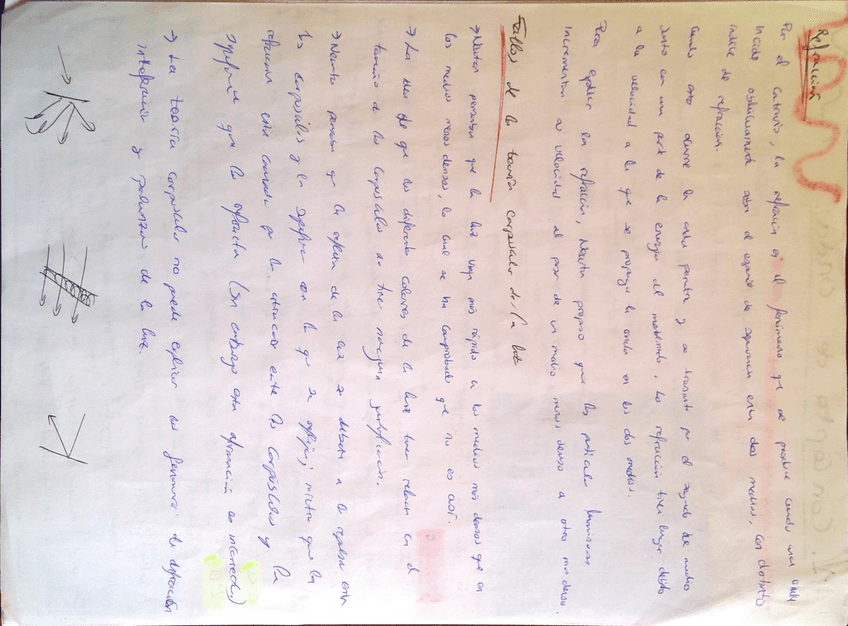 Refracción
Por el contrario, la refracción es el fenómeno que se produce cuando una onda
incide oblicuamente sobre el espacio de separación entre dos medios, con distinto
índice de refracción.
Cuando esto ocurre la onda penetra y se transmite por el segundo de medio
junto con una parte de la energía del movimiento, la refracción tiene lugar debido
a la velocidad a la que se propaga la onda en los dos medios.
Para explicar la refracción, Newton propuso que las partículas luminosas
incrementan su velocidad al pasar de un medio menos denso a otro más denso.
Fallos de la teoría corpuscular de la luz
→ Newton pensaba que la luz viaja más rápido en los medios más densos que en
los medios menos densos, lo cual se ha comprobado que no es así.
→ La idea de que los diferentes colores de la luz tienen relación con el
tamaño de los corpúsculos no tiene ninguna justificación.
→ Newton pensaba que la reflexión de la luz se debía a la repulsión entre
los corpúsculos y la superficie en la que se refleja; mientras que la
refracción está causada por la atracción entre los corpúsculos y la
superficie que los refracta (Sin embargo esta afirmación es incorrecta.)
→ La teoría corpuscular no puede explicar los fenómenos de difracción
interferencia y polarización de la luz.